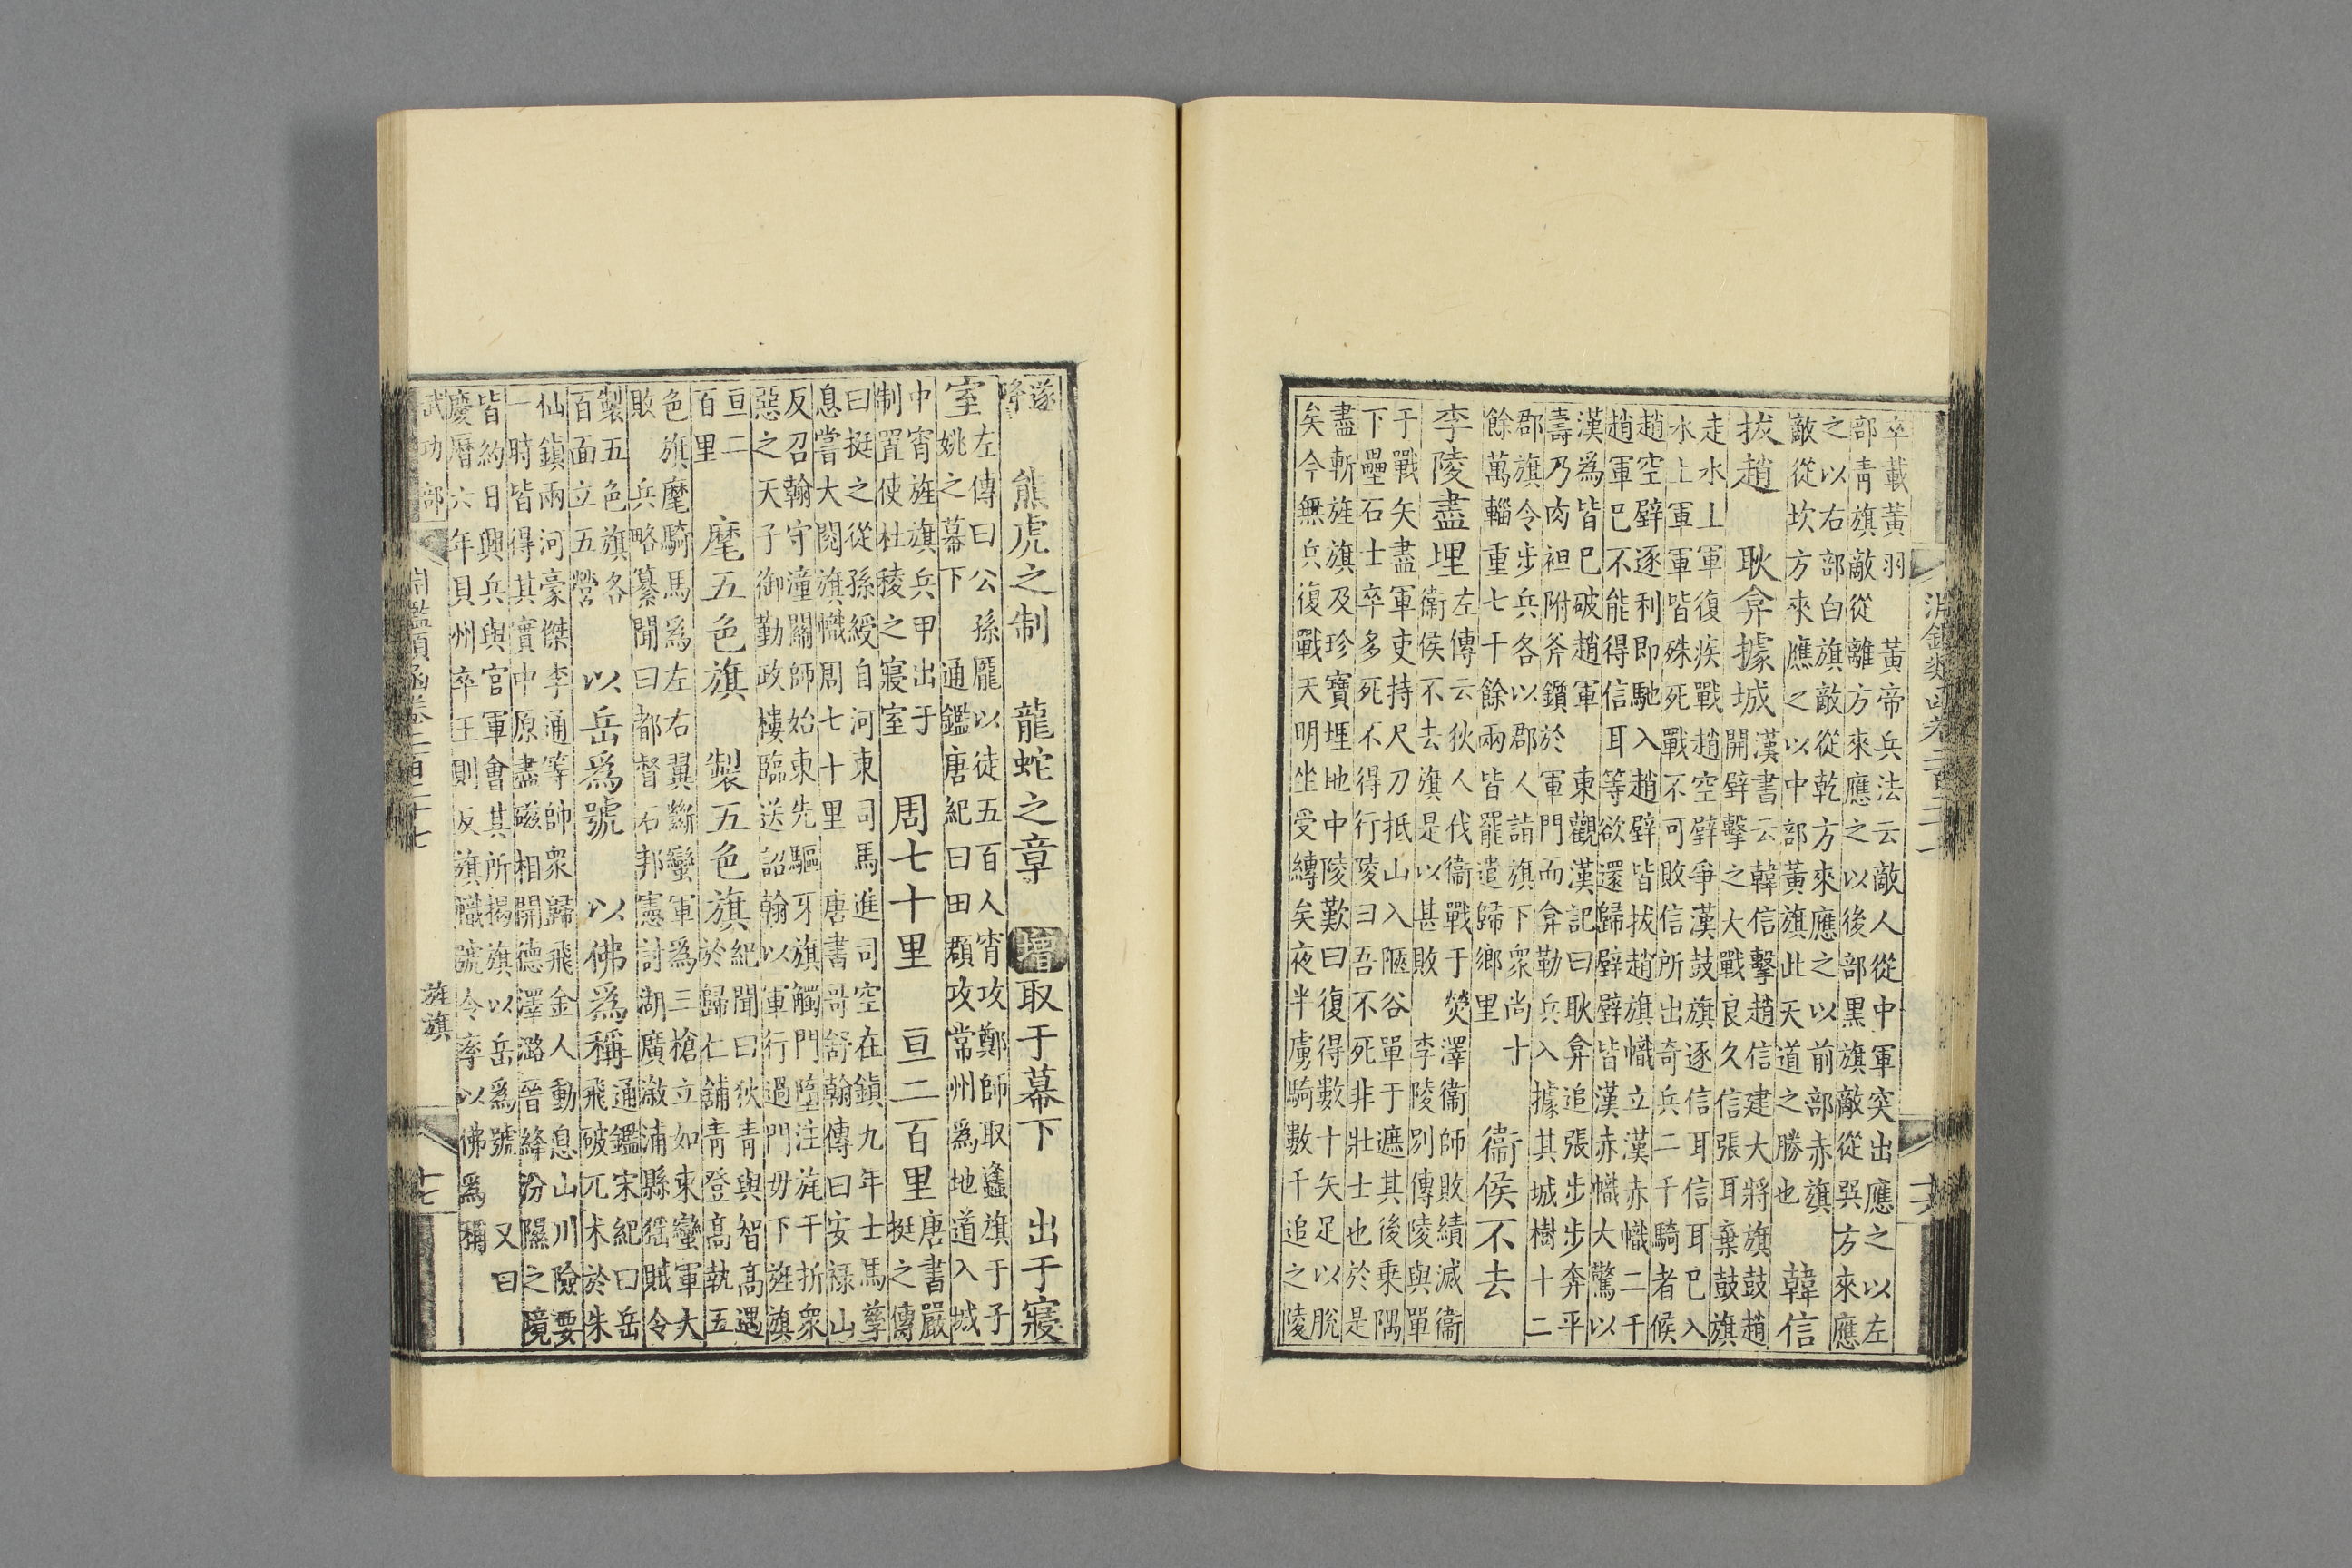 淵鑑類函卷二百二十
十六
卒載黃羽 黃帝兵法云敵人從中軍突出應之以左
部青旗敵從離方來應之以後部黑旗敵從巽方來應
之以右部白旗敵從乾方來應之以前部赤旗
敵從坎方來應之以中部黃旗此天道之勝也
韓信
拔趙 耿弇據城
漢書云韓信擊趙信建大將旗鼓趙
開壁擊之大戰良久信張耳棄鼓旗
走水上軍復疾戰趙空壁爭漢鼓旗逐信耳信耳已入
水上軍軍皆殊死戰不可敗信所出奇兵二千騎者候
趙空壁逐利即馳入趙壁皆拔趙旗幟立漢赤幟二千
趙軍已不能得信耳等欲還歸壁壁皆漢赤幟大驚以
漢爲皆已破趙軍 東觀漢記曰耿弇追張步步奔平
壽乃肉袒附斧鑕於軍門而弇勒兵入據其城樹十二
郡旗令步兵各以郡人詣旗下衆尚十
餘萬輜重七千餘兩皆罷遣歸鄉里
衞侯不去
李陵盡埋
左傳云狄人伐衞戰于熒澤衞師敗績滅衞
衞侯不去旗是以甚敗 李陵别傳陵與單
于戰矢盡軍吏持尺刀抵山入陿谷單于遮其後乘隅
下壘石士卒多死不得行陵曰吾不死非壯士也於是
盡斬旌旗及珍寶埋地中陵歎曰復得數十矢足以脫
矣今無兵復戰天明坐受縛矣夜半虜騎數千追之陵
遂
降
熊虎之制 龍蛇之章 增取于幕下 出于寢
室
左傳曰公孫龎以徒五百人宵攻鄭師取蠭旗于子
姚之幕下 通鑑唐紀曰田頵攻常州爲地道入城
中宵旌旗兵甲出于
制置使杜稜之寢室
周七十里 亘二百里
唐書嚴
挺之傳
曰挺之從孫綬自河東司馬進司空在鎮九年士馬孳
息嘗大閱旗幟周七十里 唐書哥舒翰傳曰安祿山
反召翰守潼關師始東先驅牙旗觸門墮注旄干折衆
惡之天子御勤政樓臨送詔翰以軍行過門毋下旌旗
亘二
百里
麾五色旗 製五色旗
紀聞曰狄青與智高遇
於歸仁鋪青登高執五
色旗麾騎馬爲左右翼斷蠻軍爲三槍立如束蠻軍大
敗 兵略纂聞曰都督石邦憲討湖廣漵浦縣猺賊令
製五色旗各
百面立五營
以岳爲號 以佛爲稱
通鑑宋紀曰岳
飛破兀朮於朱
仙鎮兩河豪傑李通等帥衆歸飛金人動息山川險要
一時皆得其實中原盡磁相開德澤潞晉絳汾隰之境
皆約日興兵與官軍會其所揭旗以岳爲號 又曰
慶曆六年貝州卒王則反旗幟號令率以佛爲稱
武功部
淵鑑類函卷二百二十七
旌旗
十七